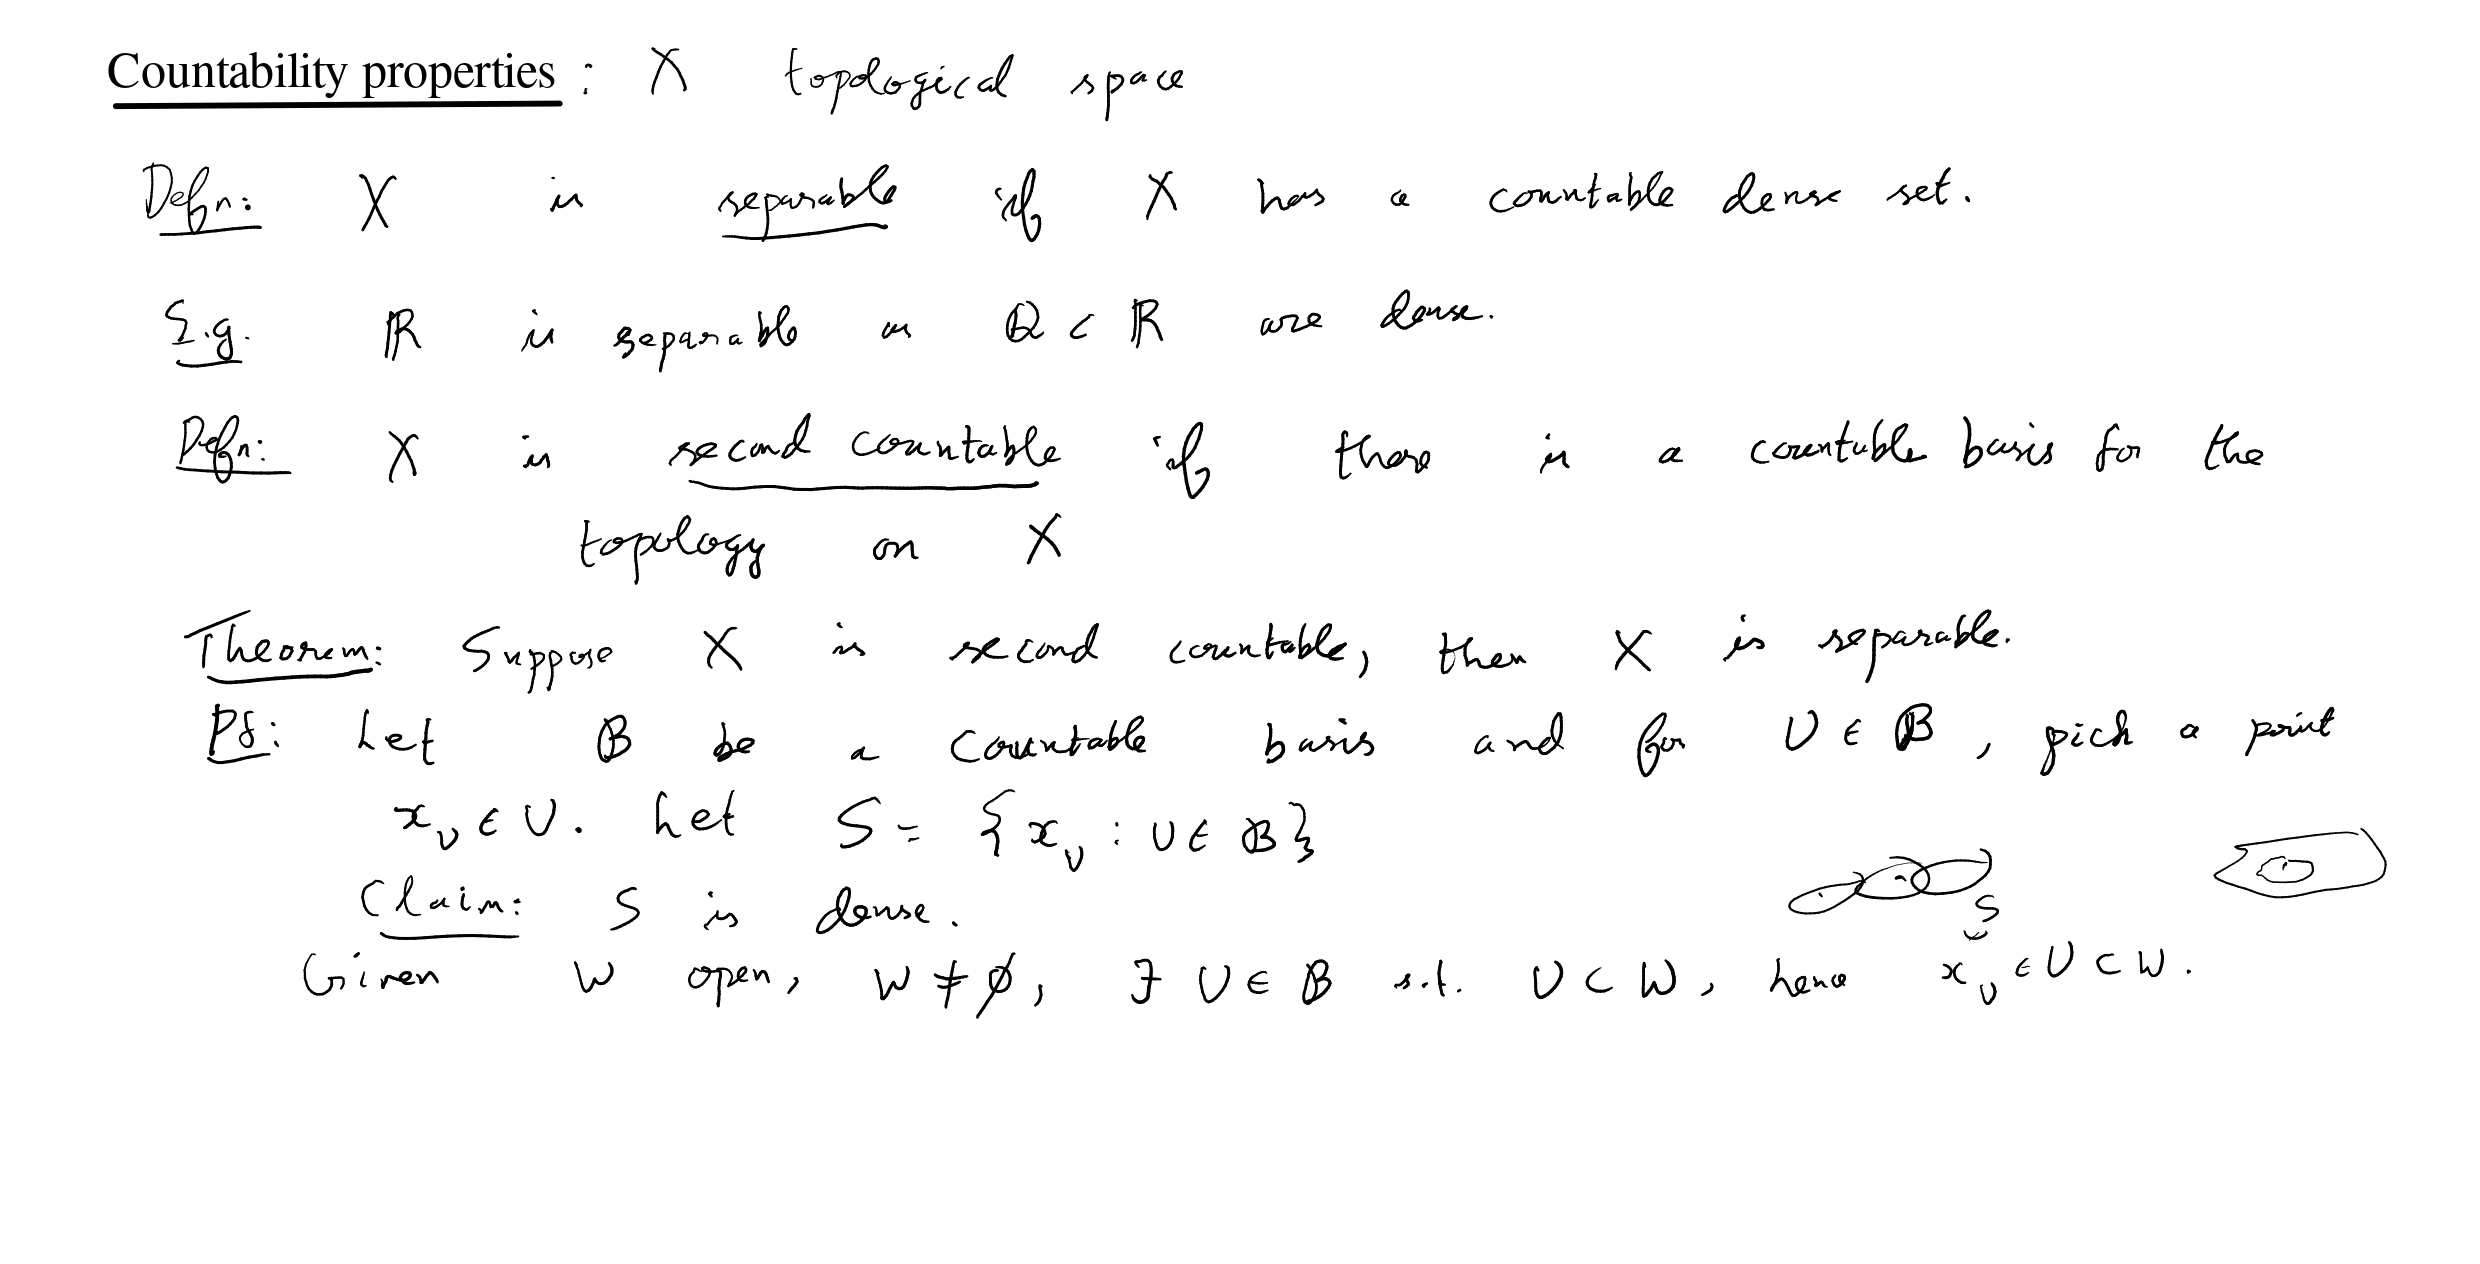 Countability properties : X topological space
Defn: X is separable if X has a countable dense set.
E.g. ℝ is separable as ℚ ⊂ ℝ are dense.
Defn: X is second countable if there is a countable basis for the
topology on X
Theorem: Suppose X is second countable, then X is separable.
Pf: Let 𝔅 be a countable basis and for U ∈ 𝔅, pick a point
x_U ∈ U. Let S = {x_U : U ∈ 𝔅}
Claim: S is dense.
S
Given W open, W ≠ ∅, ∃ U ∈ 𝔅 s.t. U ⊂ W, hence x_U ∈ U ⊂ W.